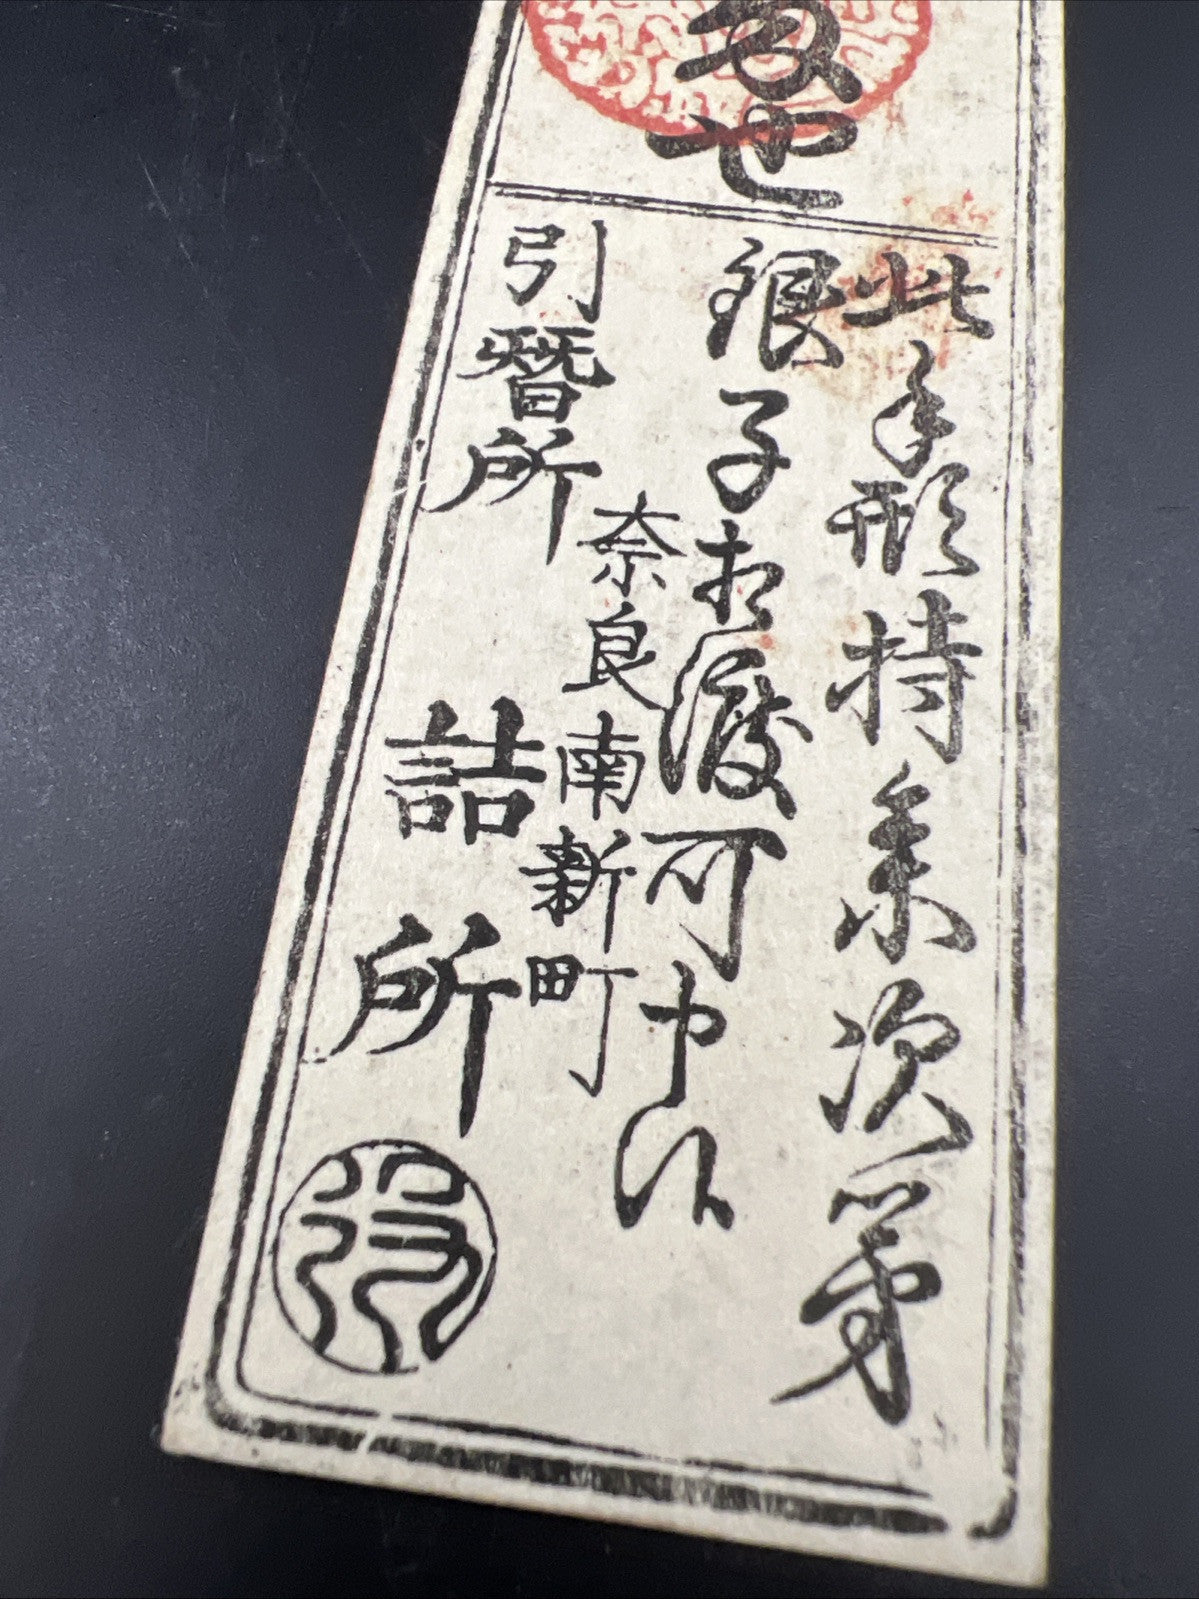 也
此手形持参次第
銀子相渡可申候
奈良南新町
引替所 詰所